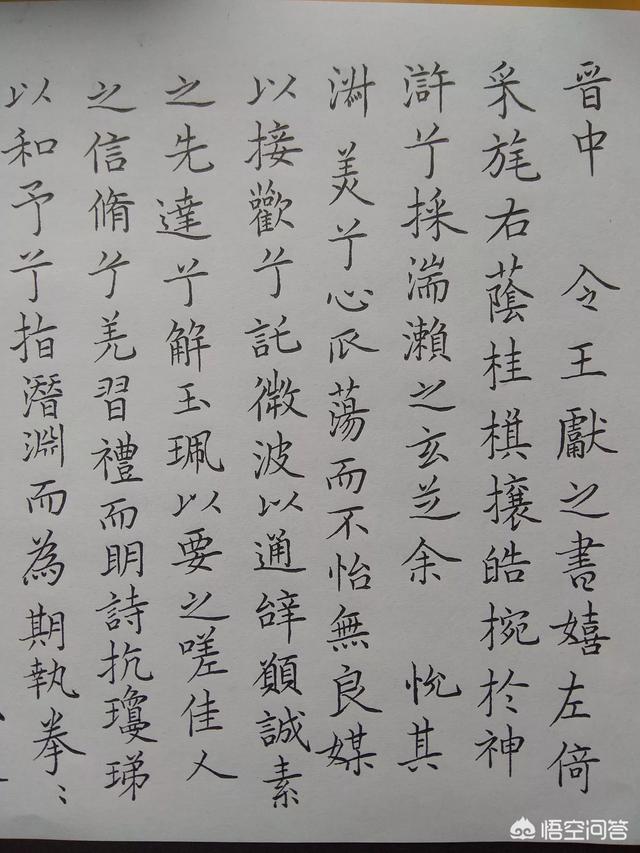 晉中 令王獻之書嬉左倚
采旄右蔭桂棋攘皓捥於神
滸兮採湍瀨之玄芝余 恱其
淋 美兮心爪蕩而不怡無良媒
以接歡兮託微波以通辝願誠素
之先達兮解玉珮以要之嗟佳人
之信脩兮羌習禮而明詩抗瓊珶
以和予兮指潛淵而為期執拳〻
悟空问答